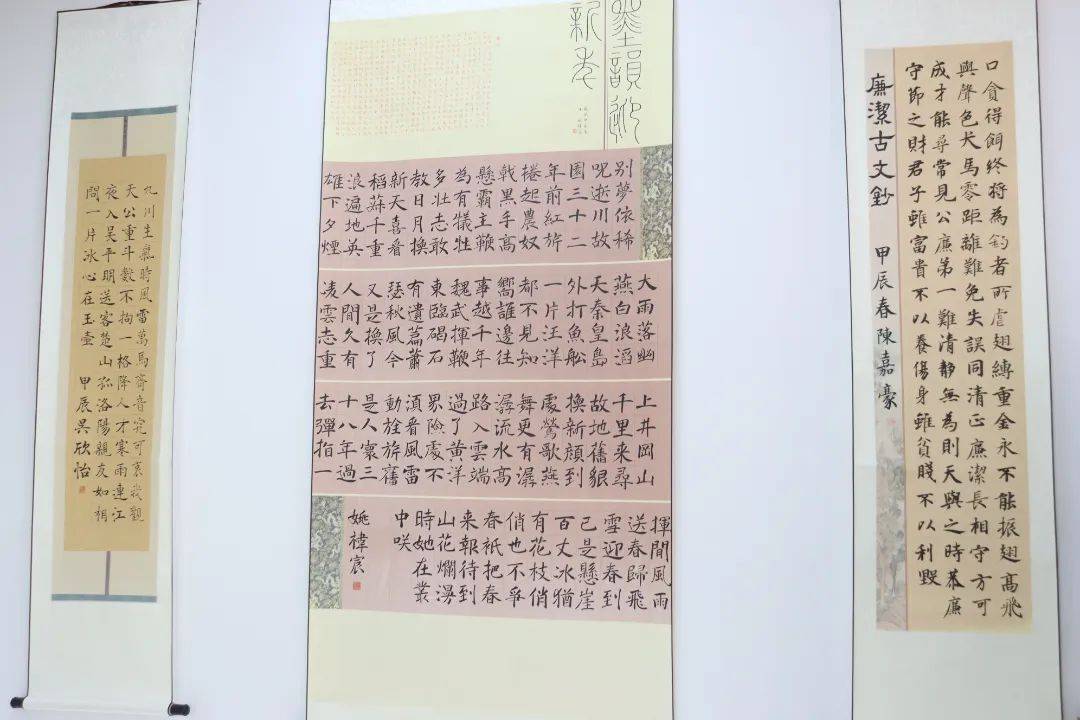 九川生氣時風雷萬馬齊音究可哀我觀
天公重斗數不拘一格降人才寒雨連江
夜入吴平明送客楚山孤洛陽親友如相
問一片冰心在玉壺 甲辰吴欣怡
墨韻迎
新年
別夢依稀
咒逝川故
園三十二
年前紅旂
捲起農奴
戟黑手高
懸霸主鞭
為有犧牲
多壯志敢
教日月換
新天喜看
稻蘇千重
浪遍地英
雄下夕煙
大雨落幽
燕白浪滔
天秦皇島
外打魚船
一片汪洋
都不見知
嚮誰邊往
事越千年
魏武揮鞭
東臨碣石
有遺篇蕭
瑟秋風今
又是換了
人間久有
凌雲志重
上井岡山
千里来尋
故地舊貌
換新顔到
處鶯歌燕
舞更有潺
潺流水高
路入雲端
過了黄洋
界險處不
須看風雷
動旌旂舊
是人寰三
十八年過
去彈指一
揮間風雨
送春歸飛
雪迎春到
已是懸崖
百丈冰猶
有花枝俏
俏也不爭
春衹把春
来報待到
山花爛漫
時她在叢
中咲
姚禕宸
口貪得餌終將為釣者所虐翅縛重金永不能振翅高飛
與聲色犬馬零距離難免失誤同清正廉潔長相守方可
成才能尋常見公廉第一難清静無為則天與之時恭廉
守節之財君子雖富貴不以養傷身雖貧賤不以利毀
廉潔古文鈔 甲辰春陳嘉豪